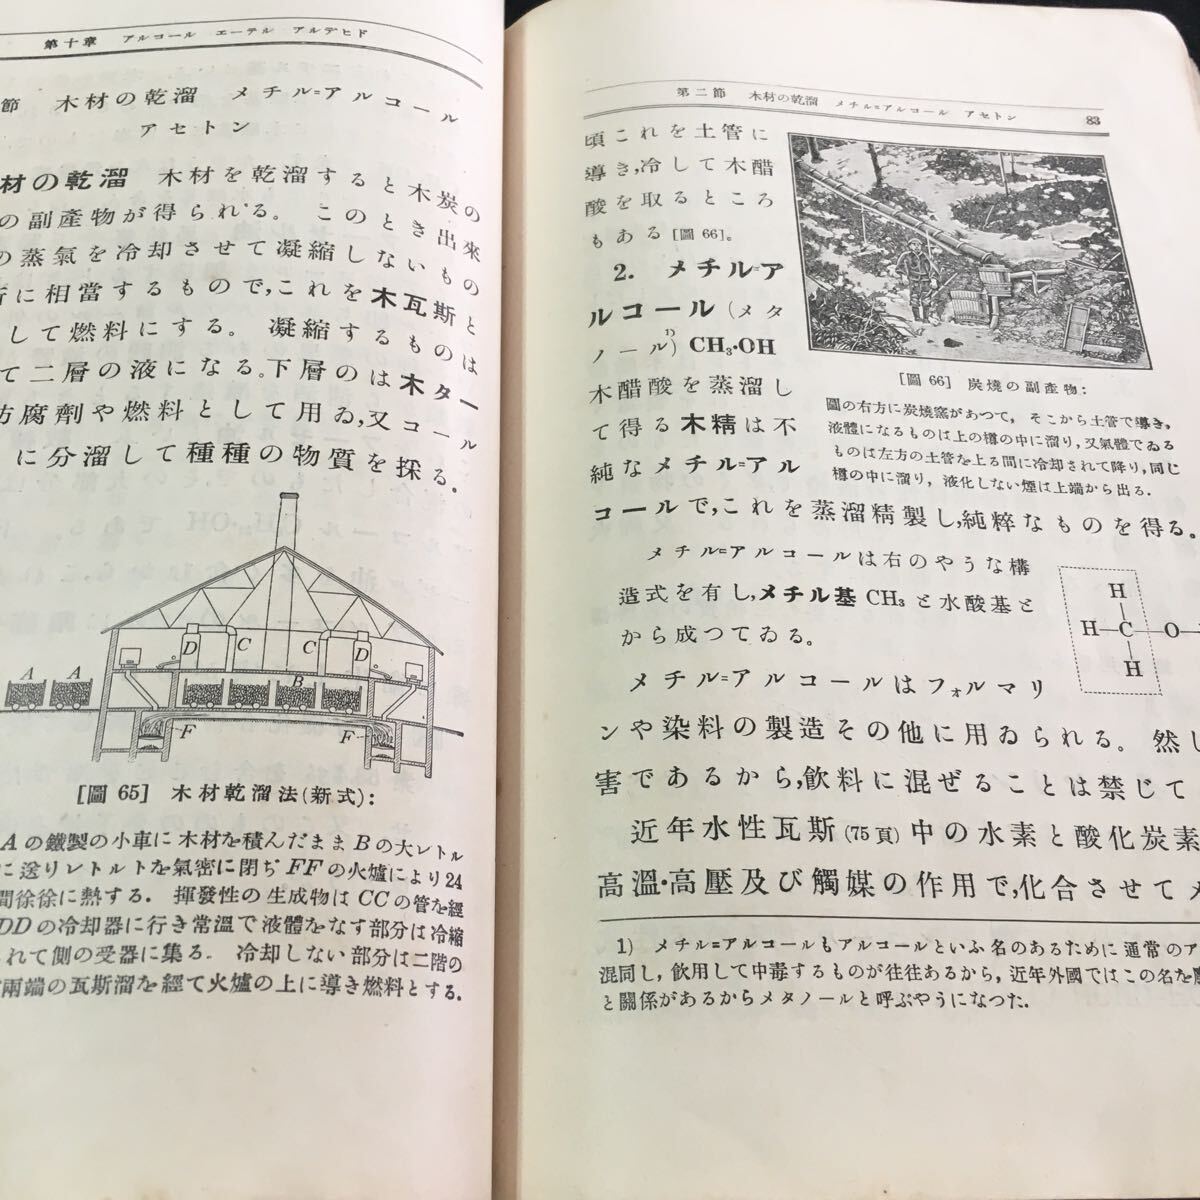 第十章 アルコール エーテル アルデヒド
節 木材の乾溜 メチル=アルコール
アセトン
材の乾溜 木材を乾溜すると木炭の
の副産物が得られる。 このとき出來
の蒸氣を冷却させて凝縮しないもの
に相當するもので,これを木瓦斯と
して燃料にする。 凝縮するものは
て二層の液になる。下層のは木ター
防腐劑や燃料として用ゐ,又コール
に分溜して種種の物質を採る。
A A D C C D B F F
[圖 65] 木材乾溜法(新式):
Aの鐵製の小車に木材を積んだまま Bの大レトル
に送りレトルトを氣密に閉ぢ FFの火爐により24
間徐徐に熱する. 揮發性の生成物は CCの管を經
DDの冷却器に行き常溫で液體をなす部分は冷縮
れて側の受器に集る. 冷却しない部分は二階の
兩端の瓦斯溜を經て火爐の上に導き燃料とする.
第二節 木材の乾溜 メチル=アルコール アセトン 83
頃これを土管に
導き,冷して木醋
酸を取るところ
もある [圖 66]。
2. メチル=ア
ルコール (メタ
ノール)1) CH3·OH
木醋酸を蒸溜し
て得る木精は不
純なメチル=アル
コールで,これを蒸溜精製し,純粹なものを得る。
[圖 66] 炭燒の副產物:
圖の右方に炭燒窯があつて, そこから土管で導き,
液體になるものは上の樽の中に溜り,又氣體でゐる
ものは左方の土管を上る間に冷却されて降り,同じ
樽の中に溜り, 液化しない煙は上端から出る.
メチル=アルコールは右のやうな構
造式を有し,メチル基 CH3 と水酸基と
から成つてゐる。
H
H—C—O
H
メチル=アルコールはフォルマリ
ンや染料の製造その他に用ゐられる。 然し
害であるから,飲料に混ぜることは禁じて
近年水性瓦斯(75頁)中の水素と酸化炭素
高溫·高壓及び觸媒の作用で,化合させてメ
1) メチル=アルコールもアルコールといふ名のあるために通常のア
混同し, 飲用して中毒するものが往往あるから, 近年外國ではこの名を
と關係があるからメタノールと呼ぶやうになつた.